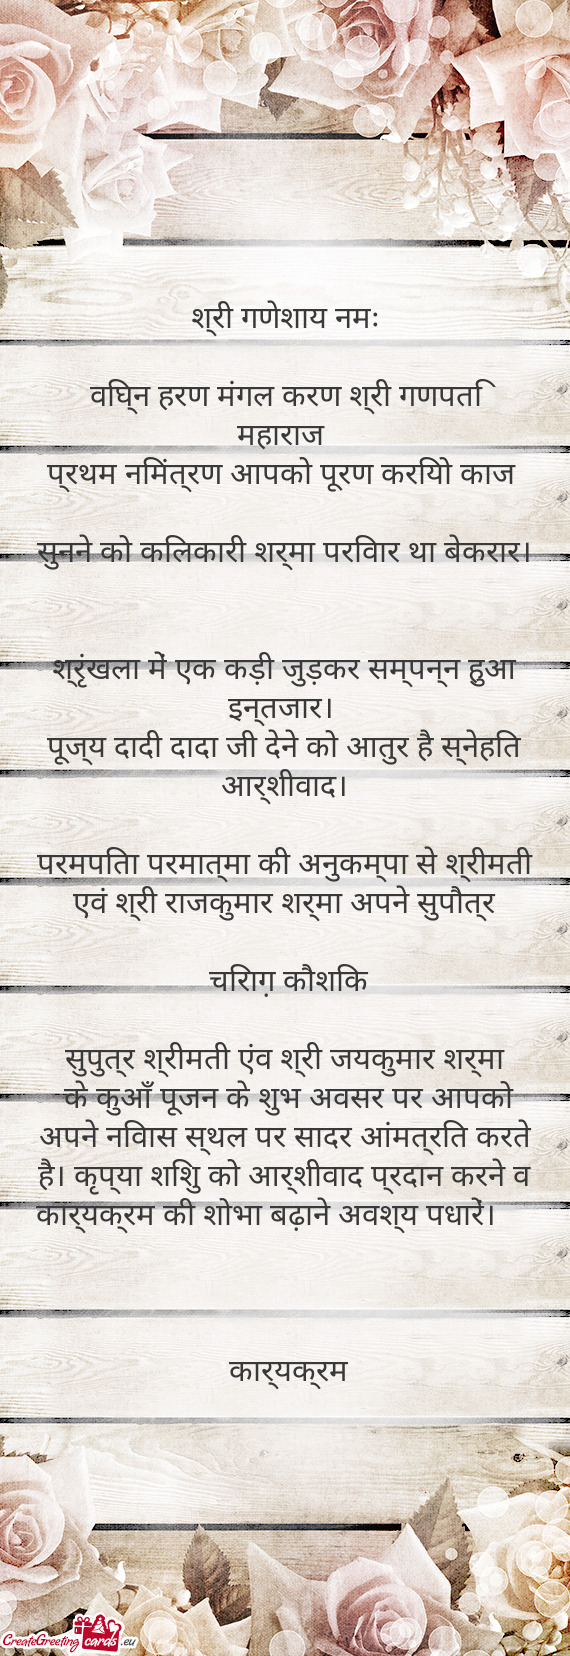 श्री गणेशाय नमः
विघ्न हरण मंगल करण श्री गणपति
महाराज
प्रथम निमंत्रण आपको पूरण करियो काज
सुनने को किलकारी शर्मा परिवार था बेकरार।
श्रृंखला में एक कड़ी जुड़कर सम्पन्न हुआ
इन्तजार।
पूज्य दादी दादा जी देने को आतुर है स्नेहति
आर्शीवाद।
परमपिता परमात्मा की अनुकम्पा से श्रीमती
एवं श्री राजकुमार शर्मा अपने सुपौत्र
चिराग़ कौशिक
सुपुत्र श्रीमती एंव श्री जयकुमार शर्मा
के कुआँ पूजन के शुभ अवसर पर आपको
अपने निवास स्थल पर सादर आंमत्रित करते
है। कृप्या शिशु को आर्शीवाद प्रदान करने व
कार्यक्रम की शोभा बढ़ाने अवश्य पधारें।
कार्यक्रम
CreateGreeting cards .eu